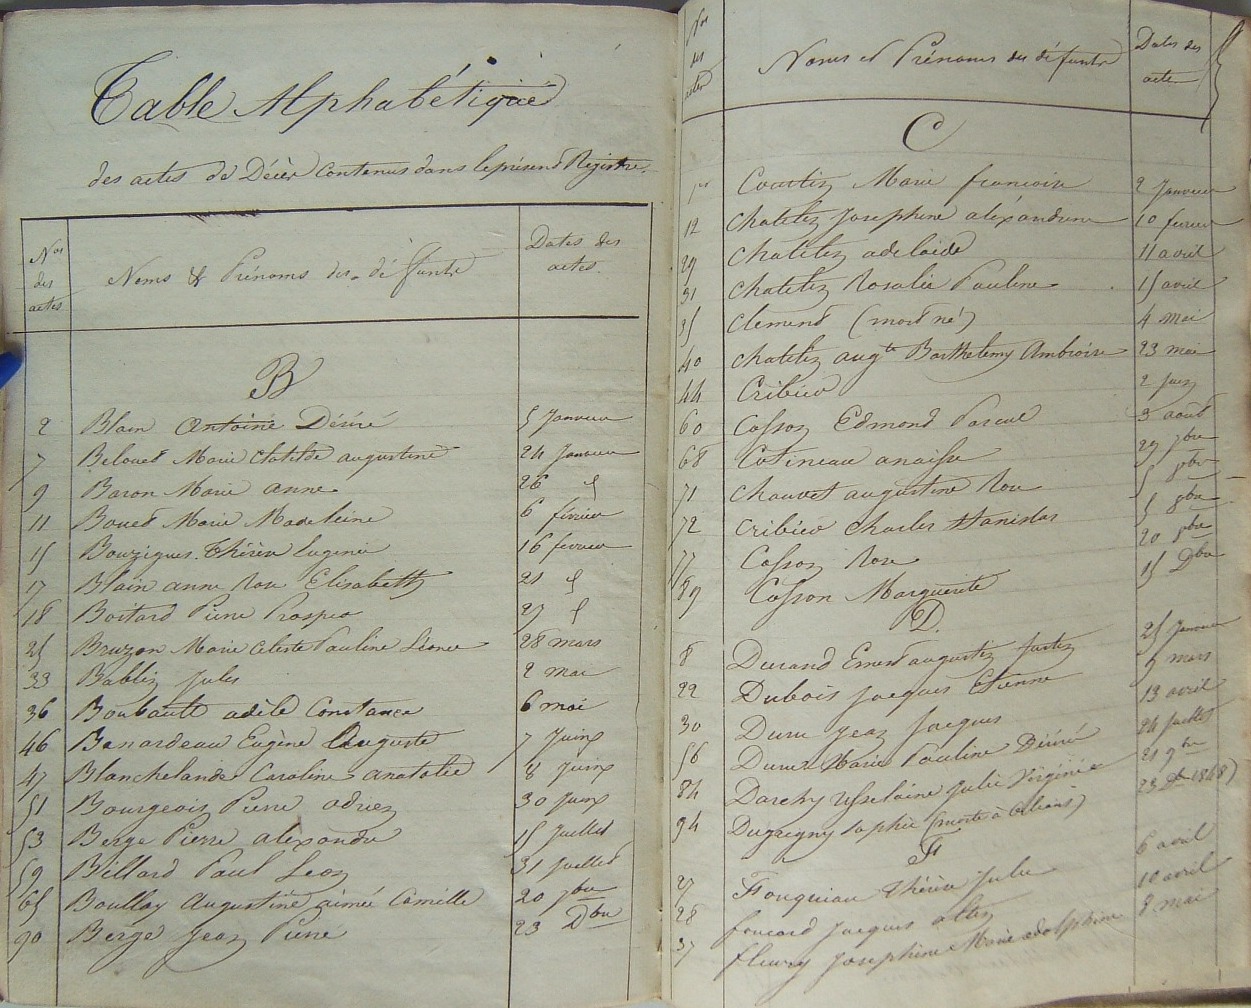 Table Alphabétique
des actes de Décès Contenus dans le présent Registre.
Nos des actes
Noms & Prénoms des défunts
Dates des actes.
B
2 Blain Antoine Désiré 5 Janvier
7 Belouet Marie Clotilde augustine 24 Janvier
9 Baron Marie anne 26 "
11 Bouet Marie Madeleine 6 février
15 Bouzigues Thérèse Eugenie 16 fevrier
17 Blain anne Rose Elisabeth 21 "
18 Boitard Pierre Prosper 27 "
25 Bruzon Marie Celeste Pauline Léonie 28 mars
33 Bablin Jules 2 mai
36 Boubault adèle Constance 6 mai
46 Benardeau Eugène Auguste 7 Juin
47 Blanchelande Caroline anatolie 8 Juin
51 Bourgeois Pierre adrien 30 Juin
53 Berge Pierre alexandre 15 Juillet
59 Billard Paul Leon 31 Juillet
65 Boullay Augustine aimée Camille 20 7bre
90 Berge Jean Pierre 23 Dbre
Nos des actes
Noms et Prénoms des défunts
Dates des acte
C
1er Courtin Marie francoise 2 Janvier
12 Chatelin Josephine aléxandrine 10 fevrier
29 Chatelin adelaide 11 avril
31 Chatelin Rosalie Pauline 15 avril
35 Clement (mort né) 4 mai
40 Chatelin augte Barthelemy Ambroise 23 mai
44 Cribier 2 Juin
60 Cosson Edmond Pascal 3 août
68 Cotineau anaïse 29 7bre
71 Chauvet augustine Rose 5 8bre
72 Cribier Charles Stanislas 5 8bre
77 Cosson Rose 20 8bre
89 Cosson Marguerite 15 Dbre
D.
8 Durand Ernest augustin 25 Janvier
22 Dubois Jacques Etienne 9 mars
30 Duru Jean Jacques 13 avril
56 Durer Marie Pauline Désiré 24 Juillet
84 Darchy Julie Virginie 21 9bre
94 Dugaigny Sophie (morte à Orléans) 23 Dbre 1868)
F
27 Fouquiau Thérèse Julie 6 avril
28 foucard Jacques alin 10 avril
37 fleury Josephine Marie adolphine 8 mai